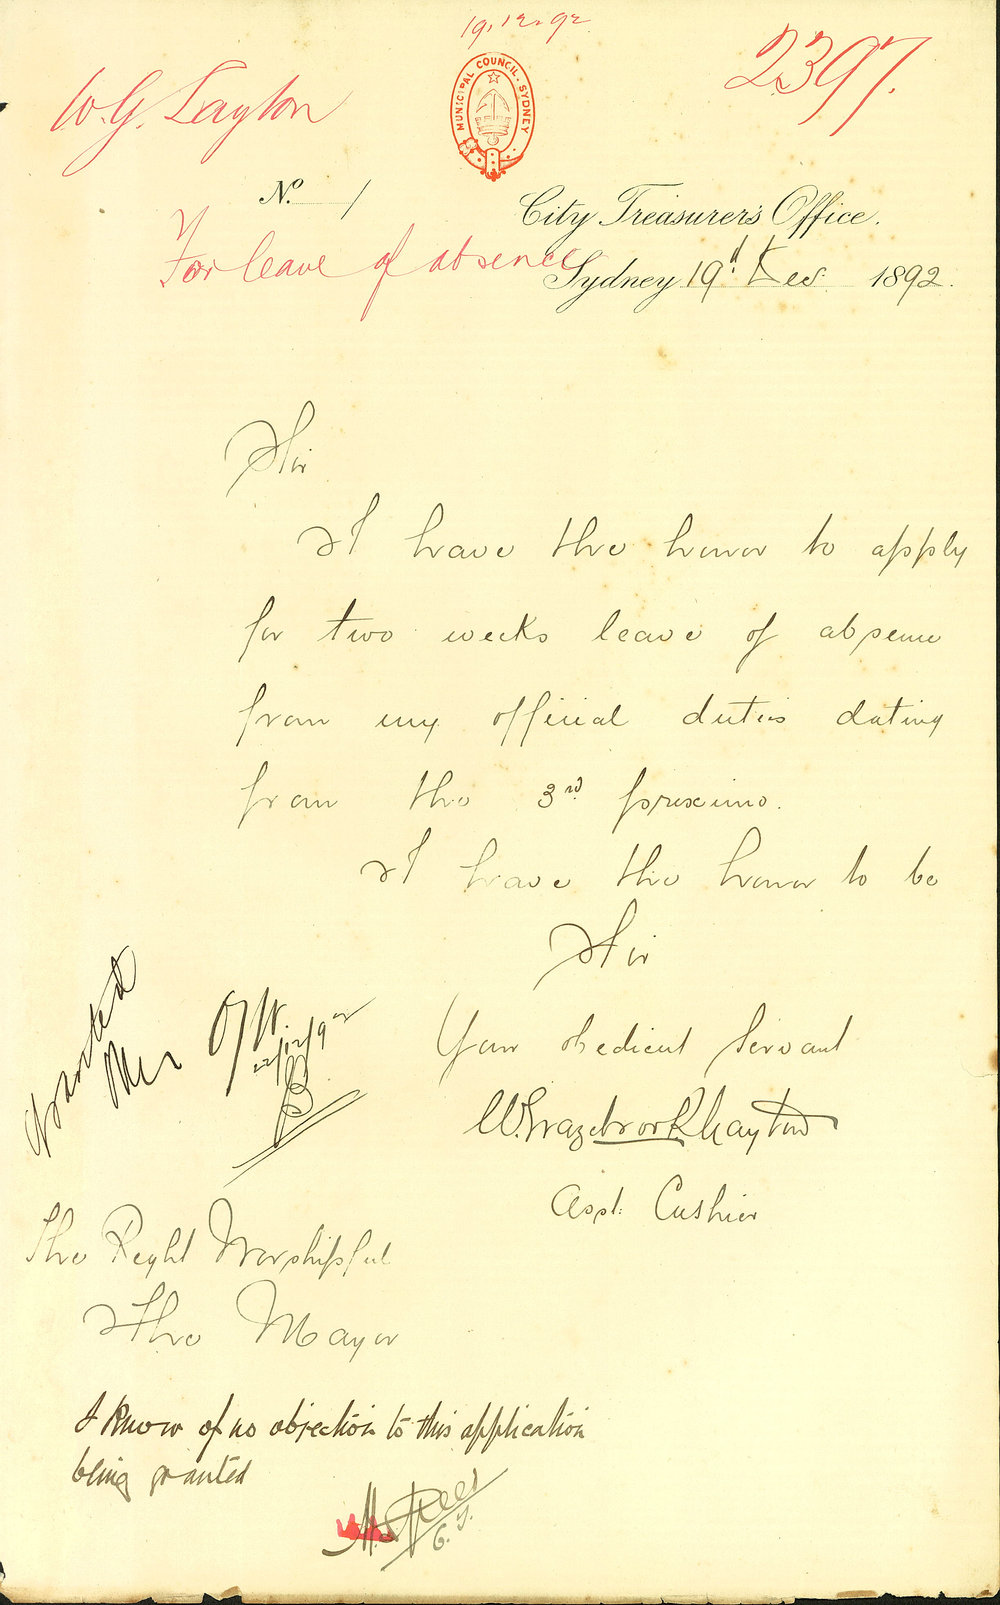 19.12.92
2397.
W.G. Layton
MUNICIPAL COUNCIL. SYDNEY
No. 1
City Treasurer's Office.
For leave of absence
Sydney 19th Dec. 1892.
Sir
I have the honor to apply
for two weeks leave of absence
from my official duties dating
from the 3rd proximo.
I have the honor to be
Sir
Your obedient Servant
W. Grazebrook Layton
Asst. Cashier
Granted
22/12/92
The Right Worshipful
The Mayor
I know of no objection to this application
being granted
C.T.